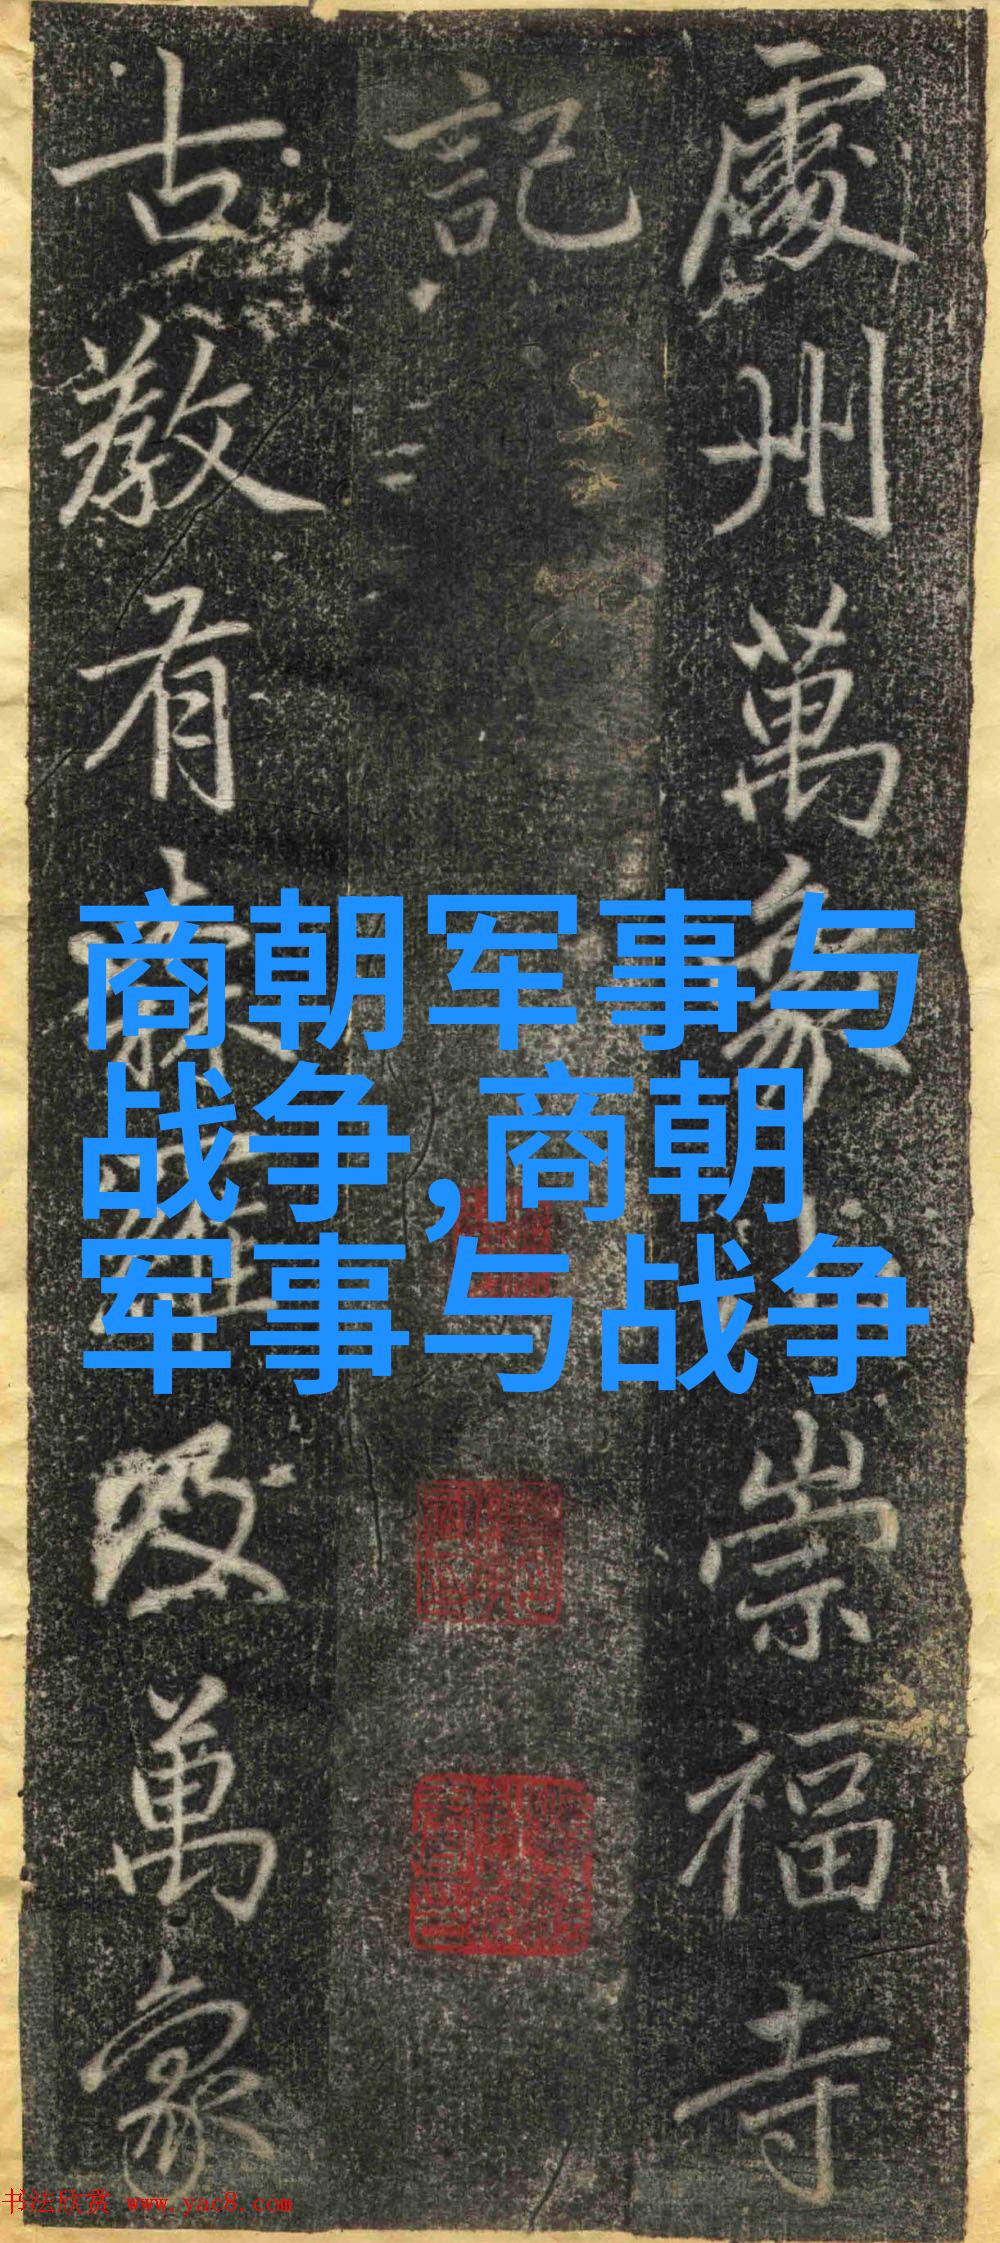 處州萬象山崇福寺
記
古教有森羅及萬象
商朝军事与
战争,商朝
军事与战争
书法欣赏 www.yac8.com